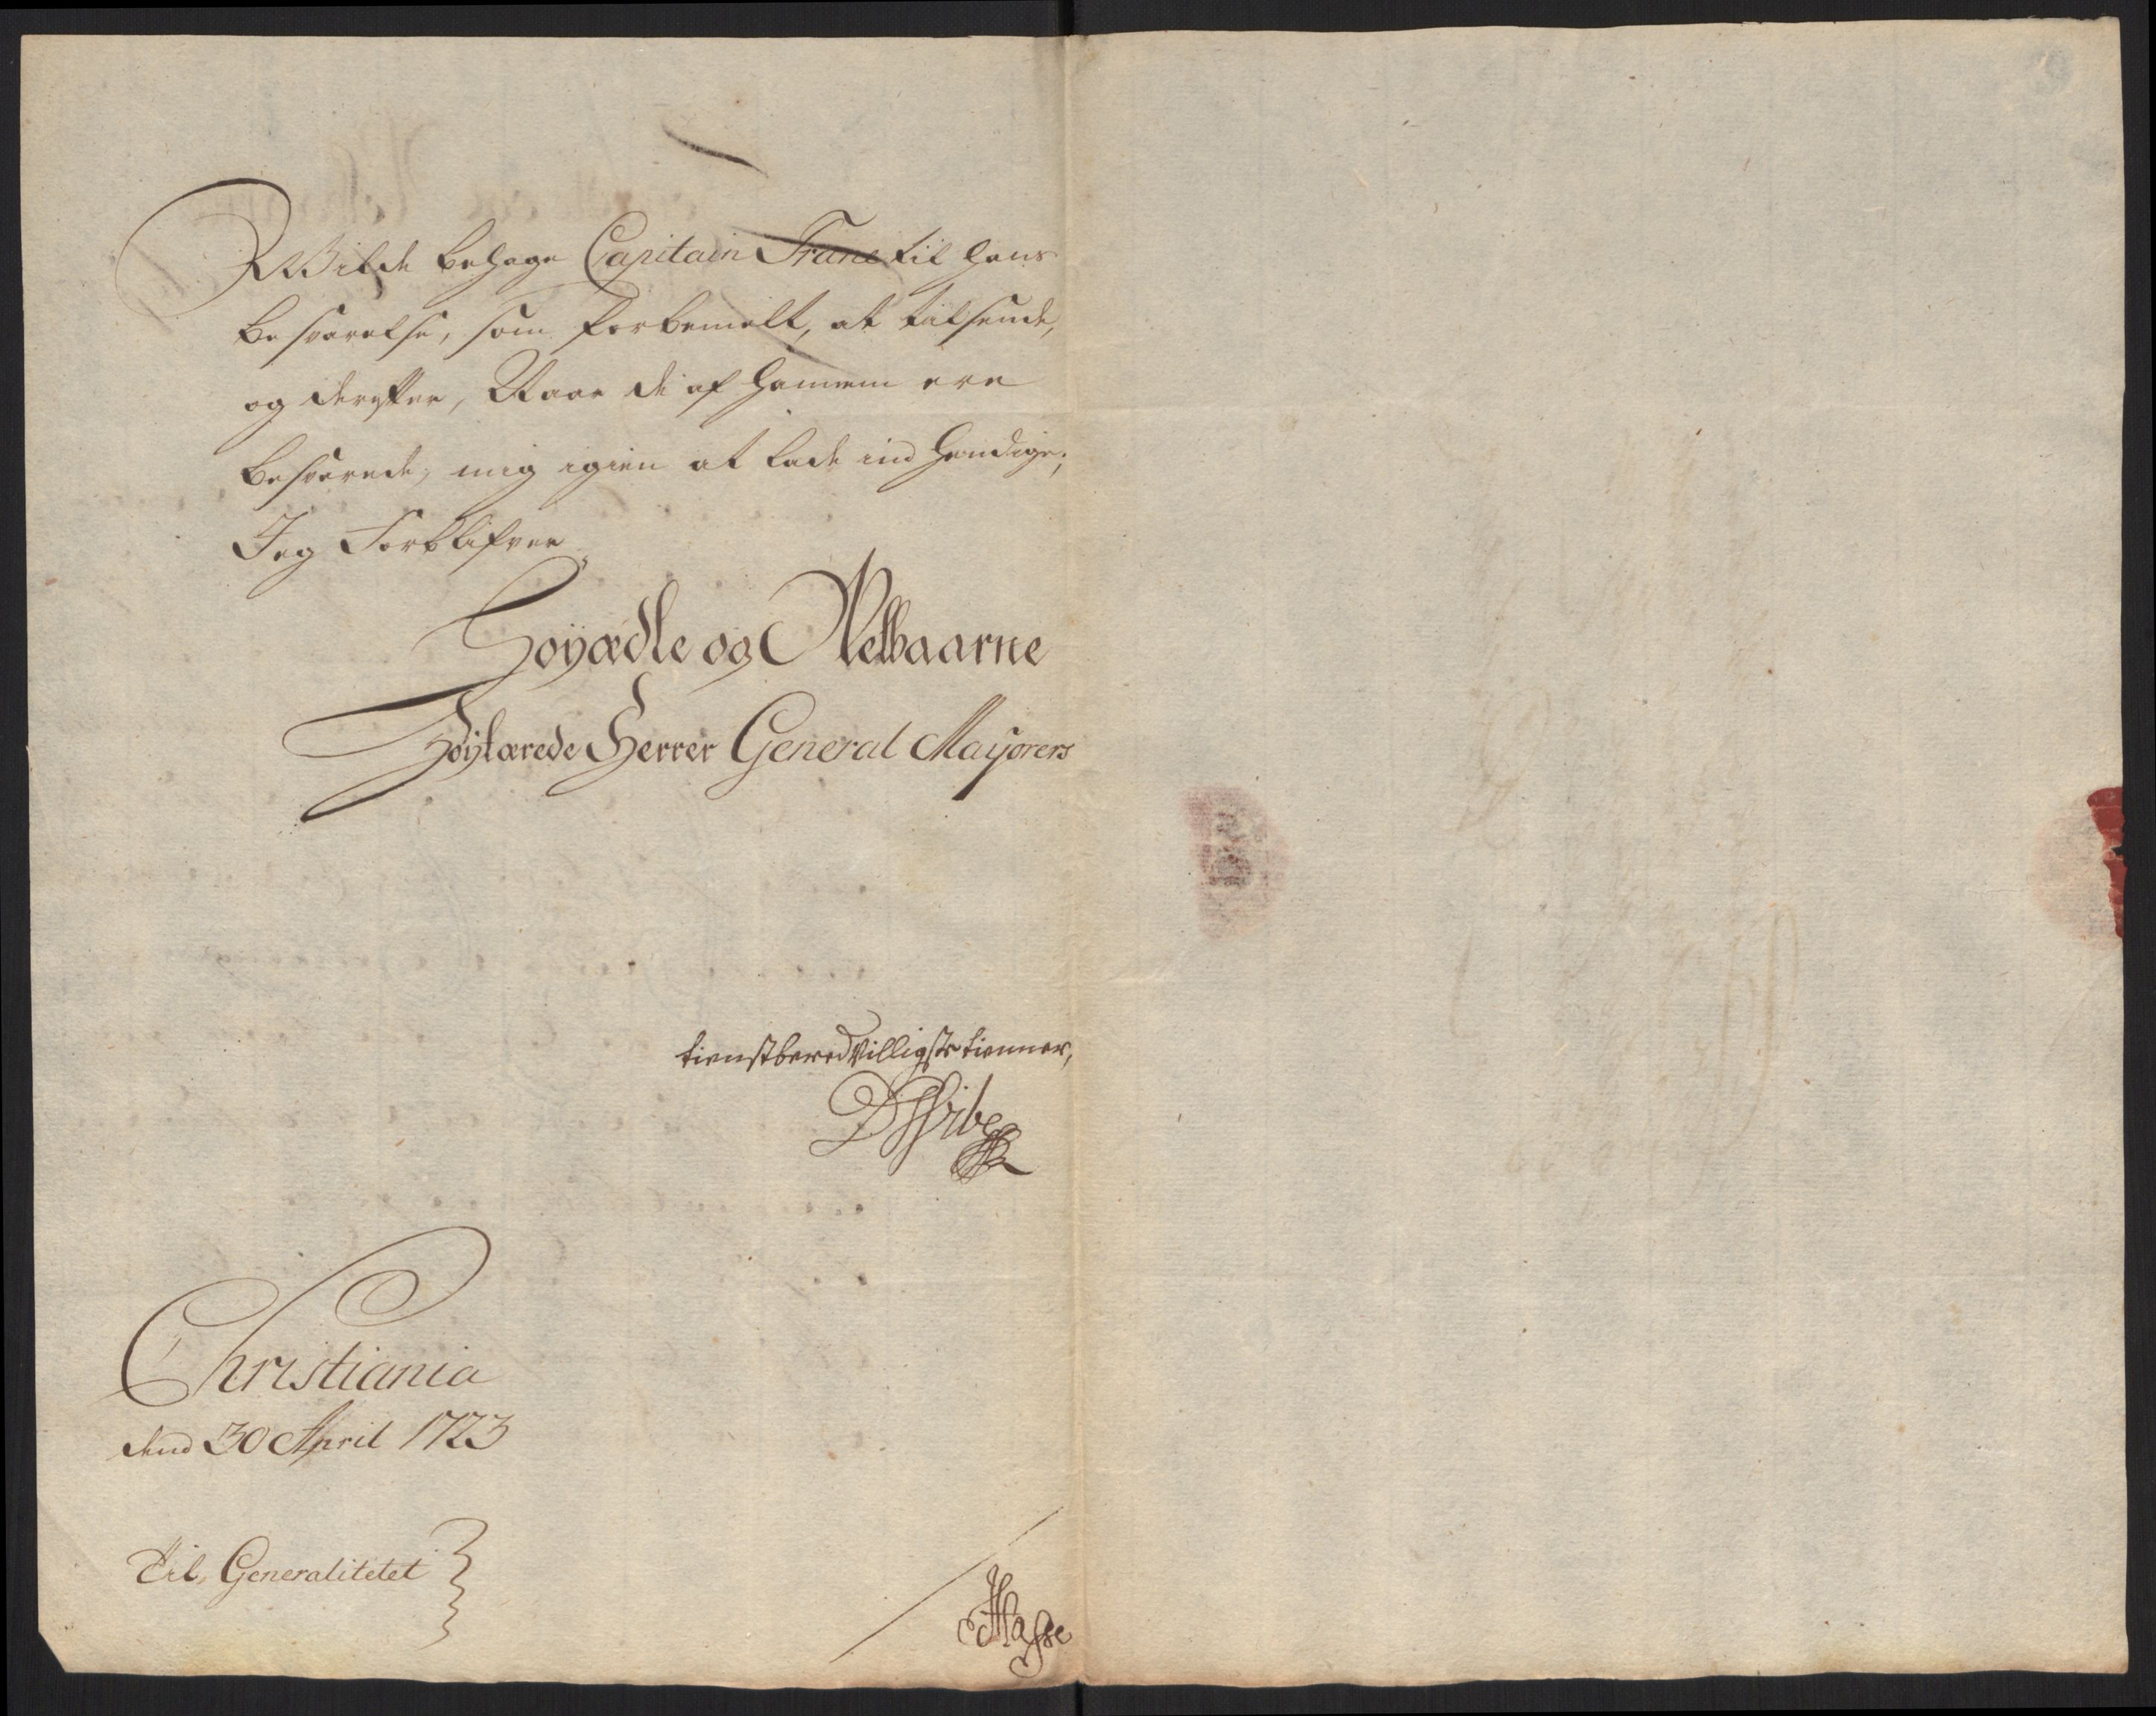 Wilde behage Capitain Trane til hans
besvarelse, som forbemelt, at tilsende,
og derefter, Naar de af hannem ere
besvarede, mig igien at lade indhendige;
Jeg Forblifver
Høyædle og Velbaarne
Høytærede Herrer General Mayorers
tienstberedvilligste tienner,
D Wibe
Christiania
dend 30 April 1723
Til Generalitetet